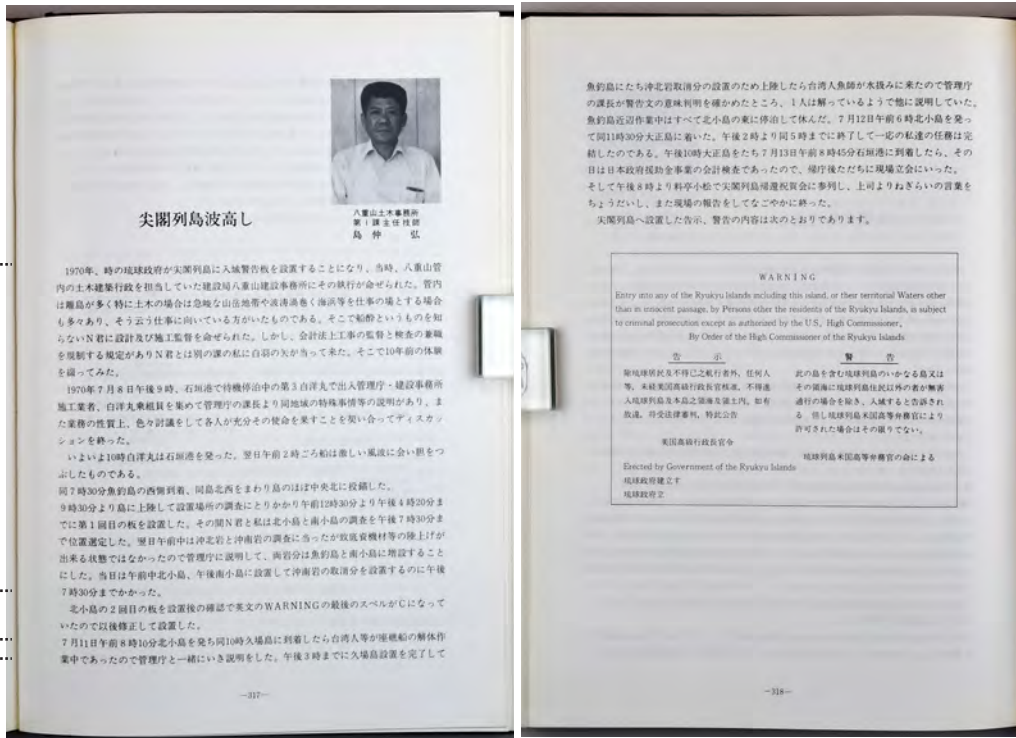 尖閣列島波高し
八重山土木事務所
第1課主任技師
島仲 弘
1970年、時の琉球政府が尖閣列島に入域警告板を設置することになり、当時、八重山管
内の土木建築行政を担当していた建設局八重山建設事務所にその執行が命ぜられた。管内
は離島が多く特に土木の場合は急峻な山岳地帯や波涛渦巻く海浜等を仕事の場とする場合
も多々あり、そう云う仕事に向いている方がいたものである。そこで船酔というものを知
らないN君に設計及び施工監督を命ぜられた。しかし、会計法上工事の監督と検査の兼職
を規制する規定がありN君とは別の課の私に白羽の矢が当って来た。そこで10年前の体験
を綴ってみた。
1970年7月8日午後9時、石垣港で待機停泊中の第3白洋丸で出入管理庁・建設事務所
施工業者、白洋丸乗組員を集めて管理庁の課長より同地域の特殊事情等の説明があり、ま
た業務の性質上、色々討議をして各人が充分その使命を果すことを契い合ってディスカッ
ションを終った。
いよいよ10時白洋丸は石垣港を発った。翌日午前2時ごろ船は激しい風波に会い胆をつ
ぶしたものである。
同7時30分魚釣島の西側到着、同島北西をまわり島のほぼ中央北に投錨した。
9時30分より島に上陸して設置場所の調査にとりかかり午前12時30分より午後4時20分ま
でに第1回目の板を設置した。その間N君と私は北小島と南小島の調査を午後7時30分ま
で位置選定した。翌日午前中は沖北岩と沖南岩の調査に当ったが致底資機材等の陸上げが
出来る状態ではなかったので管理庁に説明して、両岩分は魚釣島と南小島に増設すること
にした。当日は午前中北小島、午後南小島に設置して沖南岩の取消分を設置するのに午後
7時30分までかかった。
北小島の2回目の板を設置後の確認で英文のWARNINGの最後のスペルがCになって
いたので以後修正して設置した。
7月11日午前8時10分北小島を発ち同10時久場島に到着したら台湾人等が座礁船の解体作
業中であったので管理庁と一緒にいき説明をした。午後3時までに久場島設置を完了して
—317—
魚釣島にたち沖北岩取消分の設置のため上陸したら台湾人魚師が水扱みに来たので管理庁
の課長が警告文の意味判明を確かめたところ、1人は解っているようで他に説明していた。
魚釣島近辺作業中はすべて北小島の東に停泊して休んだ。7月12日午前6時北小島を発っ
て同11時30分大正島に着いた。午後2時より同5時までに終了して一応の私達の任務は完
結したのである。午後10時大正島をたち7月13日午前8時45分石垣港に到着したら、その
日は日本政府援助金事業の会計検査であったので、帰庁後ただちに現場立会にいった。
そして午後8時より料亭小松で尖閣列島帰還祝賀会に参列し、上司よりねぎらいの言葉を
ちょうだいし、また現場の報告をしてなごやかに終った。
尖閣列島へ設置した告示、警告の内容は次のとおりであります。
WARNING
Entry into any of the Ryukyu Islands including this island, or their territorial Waters other
than in innocent passage, by Persons other the residents of the Ryukyu Islands, is subject
to criminal prosecution except as authorized by the U.S, High Commissioner,
By Order of the High Commissioner of the Ryukyu Islands
告 示
除琉球居民及不得已之航行者外、任何人
等、未経美国高級行政長官核准、不得進
入琉球列島及本島之領海及領土内、如有
故違、将受法律審判、特此公告
美国高級行政長官令
警 告
此の島を含む琉球列島のいかなる島又は
その領海に琉球列島住民以外の者が無害
通行の場合を除き、入域すると告訴され
る 但し琉球列島米国高等弁務官により
許可された場合はその限りでない。
琉球列島米国高等弁務官の命による
Erected by Government of the Ryukyu Islands
琉球政府建立す
琉球政府立
—318—